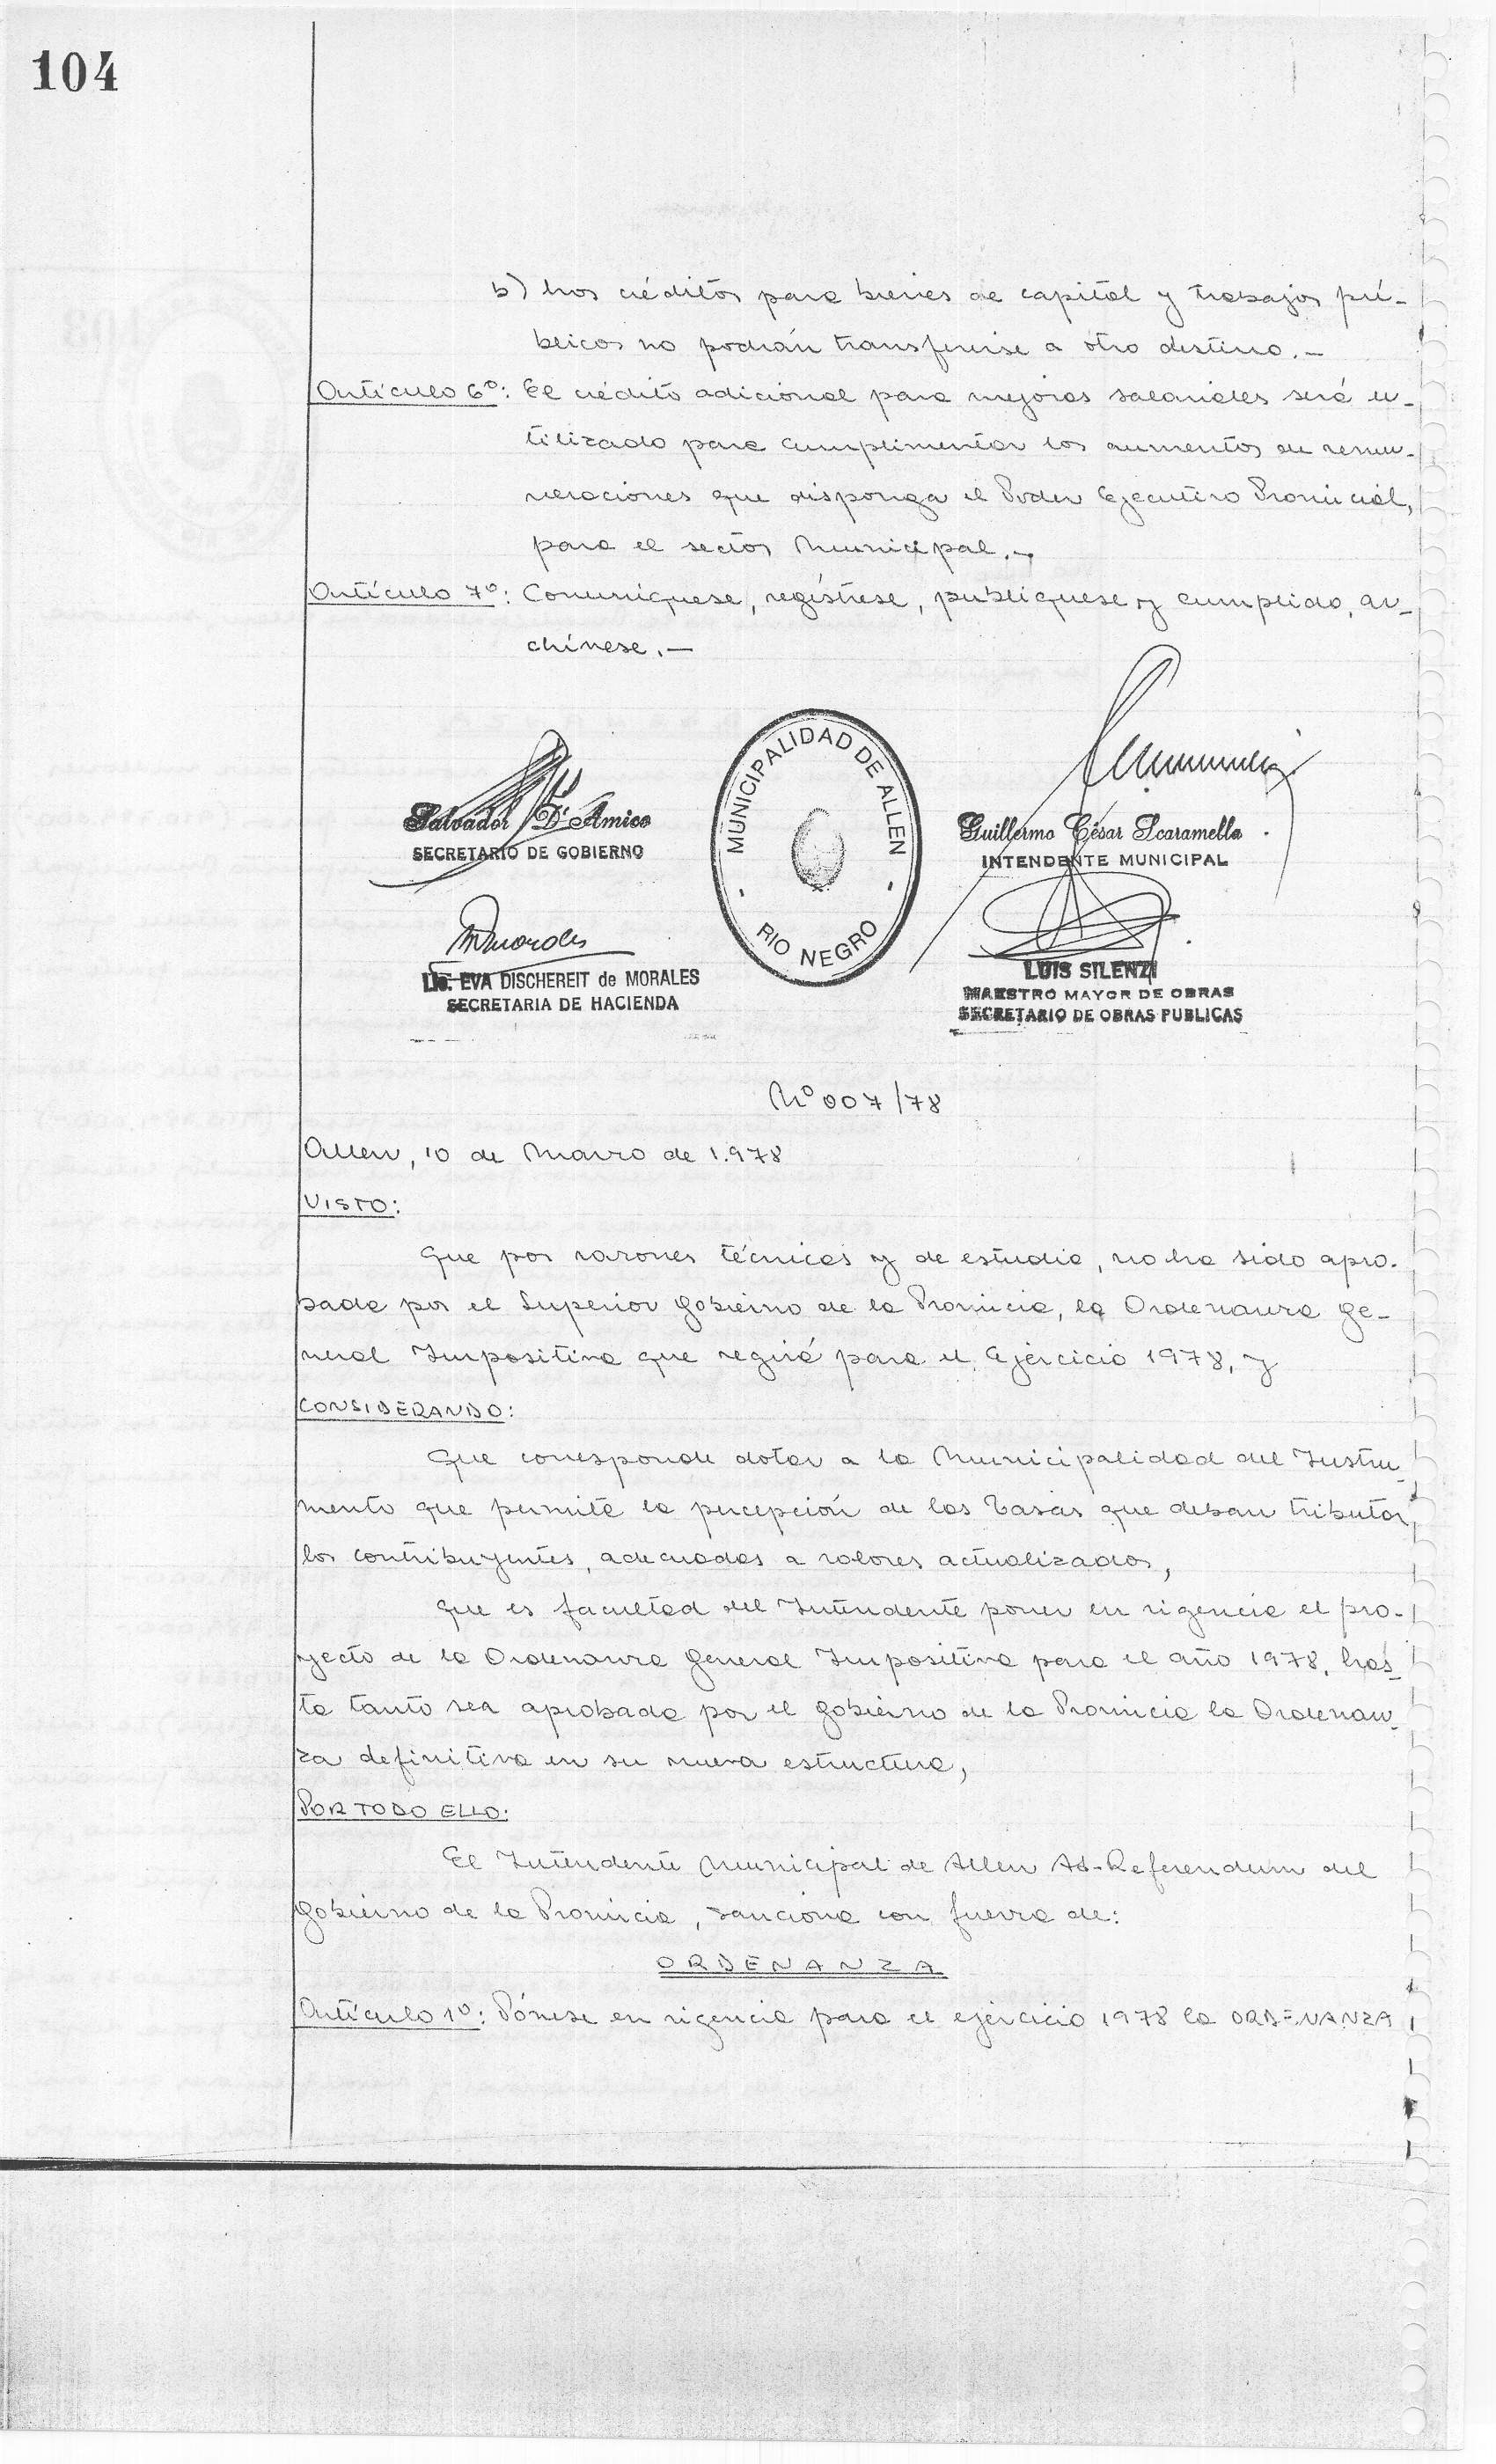 104
b) Los créditos para bienes de capital y trabajos pú-
blicos no podrán transferirse a otro destino.-
Artículo 6º: El crédito adicional para mejoras salariales será u-
tilizado para cumplimentar los aumentos en remu-
neraciones que disponga el Poder Ejecutivo Provincial,
para el sector Municipal.-
Artículo 7º: Comuníquese, regístrese, publíquese y cumplido, ar-
chívese.-
Salvador D'Amico
SECRETARIO DE GOBIERNO
MUNICIPALIDAD DE ALLEN
- RIO NEGRO -
Guillermo César Scaramella
INTENDENTE MUNICIPAL
Lic. EVA DISCHEREIT de MORALES
SECRETARIA DE HACIENDA
LUIS SILENZI
MAESTRO MAYOR DE OBRAS
SECRETARIO DE OBRAS PUBLICAS
Nº 007/78
Allen, 10 de Marzo de 1.978
VISTO:
Que por razones técnicas y de estudio, no ha sido apro-
bada por el Superior Gobierno de la Provincia, la Ordenanza Ge-
neral Impositiva que regirá para el Ejercicio 1978, y
CONSIDERANDO:
Que corresponde dotar a la Municipalidad del Instru-
mento que permite la percepción de las Tasas que deban tributar
los contribuyentes, adecuadas a valores actualizados,
que es facultad del Intendente poner en vigencia el pro-
yecto de la Ordenanza General Impositiva para el año 1978, has-
ta tanto sea aprobada por el Gobierno de la Provincia la Ordenan-
za definitiva en su nueva estructura,
POR TODO ELLO:
El Intendente Municipal de Allen Ad-Referendum del
Gobierno de la Provincia, sanciona con fuerza de:
ORDENANZA
Artículo 1º: Pónese en vigencia para el ejercicio 1978 la ORDENANZA